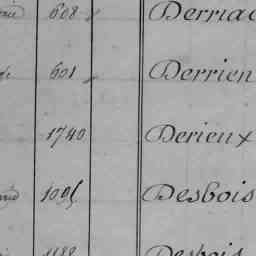 608 Derriac
601 Derrien
1740 Derieux
1095 Desbois
1188 Desbois